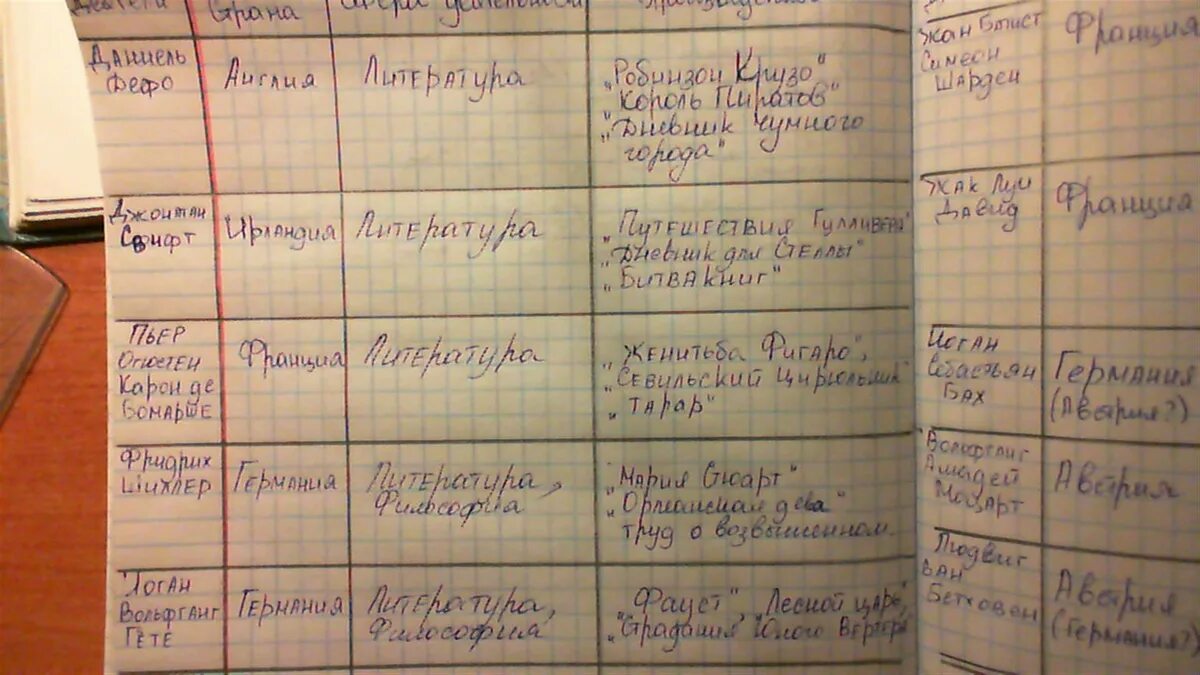 Страна
Даниель
Дефо
Англия
Литература
„Робинзон Крузо"
„Король Пиратов"
„Дневник чумного
города"
Джонатан
Свифт
Ирландия
Литература
„Путешествия Гулливера"
„Дневник для Стеллы"
„Битва книг"
Пьер
Огюстен
Карон де
Бомарше
Франция
Литература
„Женитьба Фигаро",
„Севильский цирюльник"
„Тарар"
Фридрих
Шиллер
Германия
Литература,
Философия
„Мария Стюарт"
„Орлеанская дева"
труд о возвышенном.
Иоган
Вольфганг
Гёте
Германия
Литература,
Философия
„Фауст", „Лесной царь",
„Страдания Юного Вертера"
Жан Батист
Симеон
Шарден
Франция
Жак Луи
Давид
Франция
Иоган
Себастьян
Бах
Германия
(Австрия?)
Вольфганг
Амадей
Моцарт
Австрия
Людвиг
ван
Бетховен
Австрия
(Германия?)